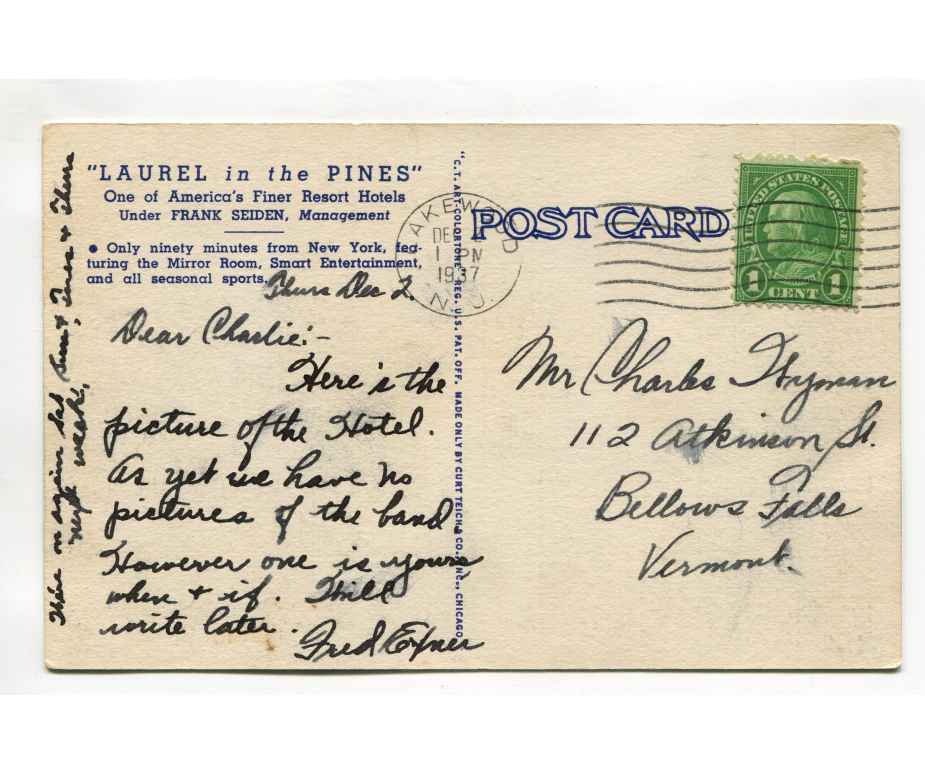 "LAUREL in the PINES"
One of America's Finer Resort Hotels
Under FRANK SEIDEN, Management
• Only ninety minutes from New York, fea-
turing the Mirror Room, Smart Entertainment,
and all seasonal sports.
Thurs Dec 2.
Dear Charlie:-
Here's the
picture of the Hotel.
As yet we have no
pictures of the band.
However one is yours
when & if. Will
write later.
Fred Exner
We're on again Sat Sun &, Tues & Thurs
next week!
"C.T. ART-COLORTONE" REG. U.S. PAT. OFF. MADE ONLY BY CURT TEICH & CO., INC., CHICAGO
POST CARD
LAKEWOOD
DEC 2
1 PM
1937
N.J.
UNITED STATES POSTAGE
1 CENT 1
Mr Charles Wyman
112 Atkinson St.
Bellows Falls
Vermont.